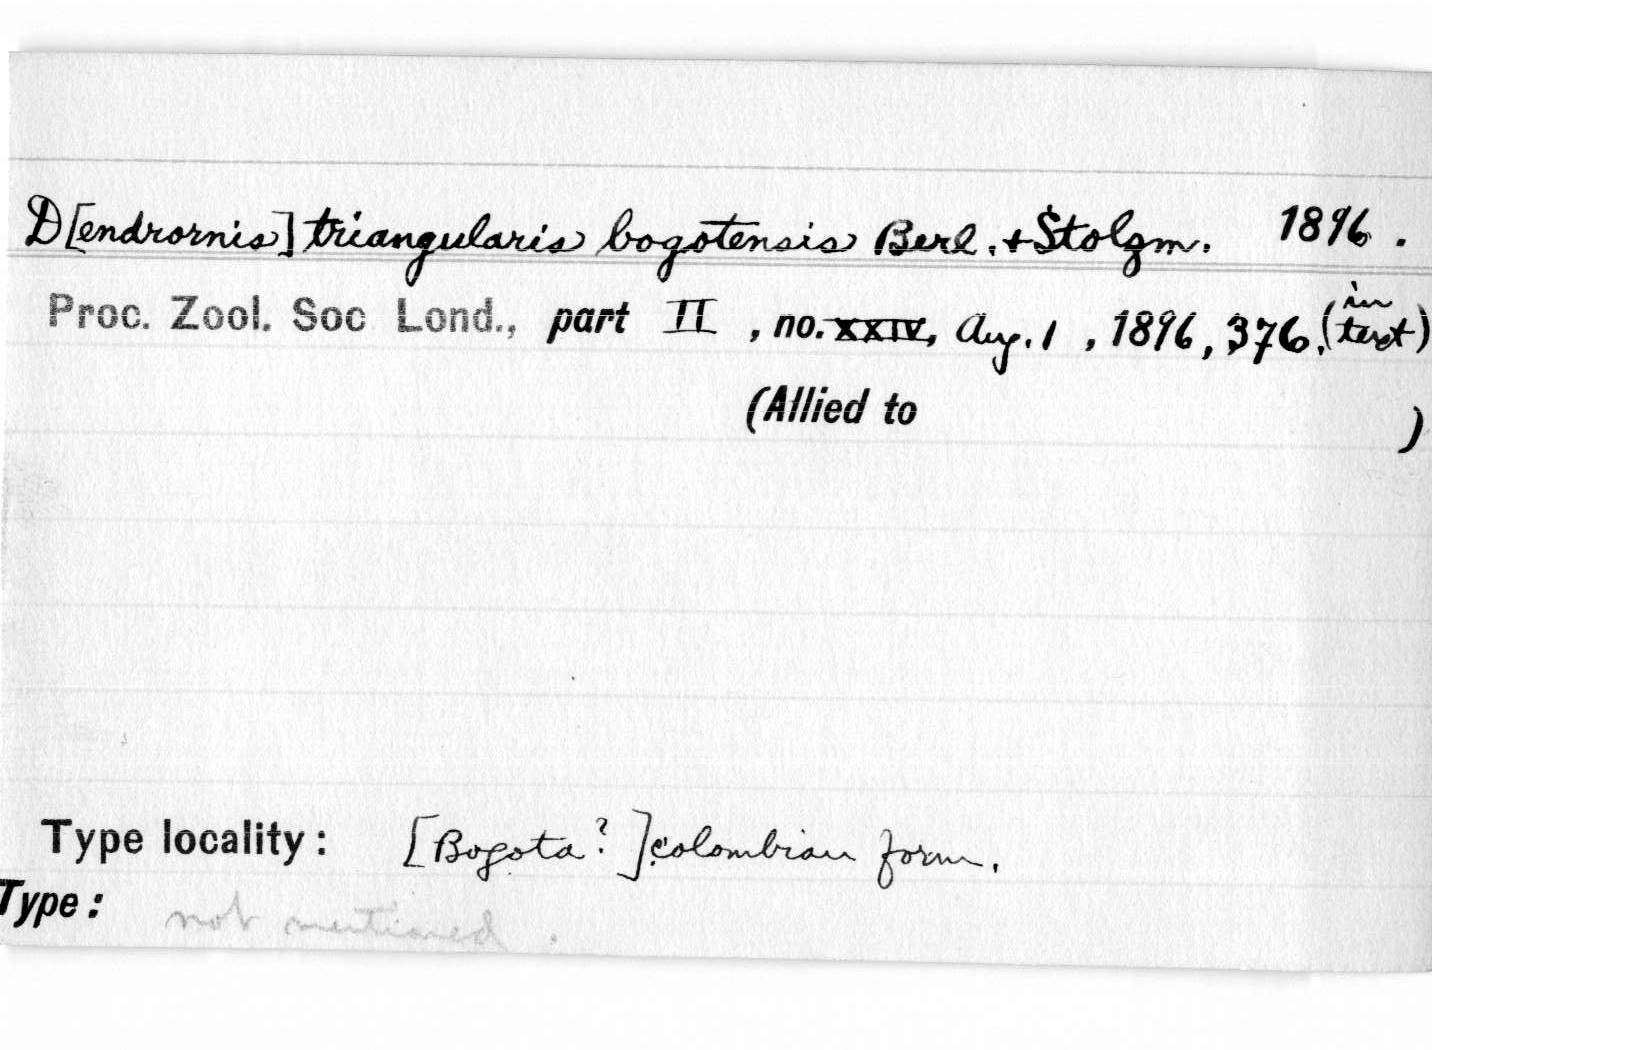 D[endrornis] triangularis bogotensis Berl. + Stolzm. 1896.
Proc. Zool. Soc Lond., part II, no. XXIV, Aug. 1, 1896, 376. (in text)
(Allied to )
Type locality: [Bogota?] colombian form.
Type: not mentioned.